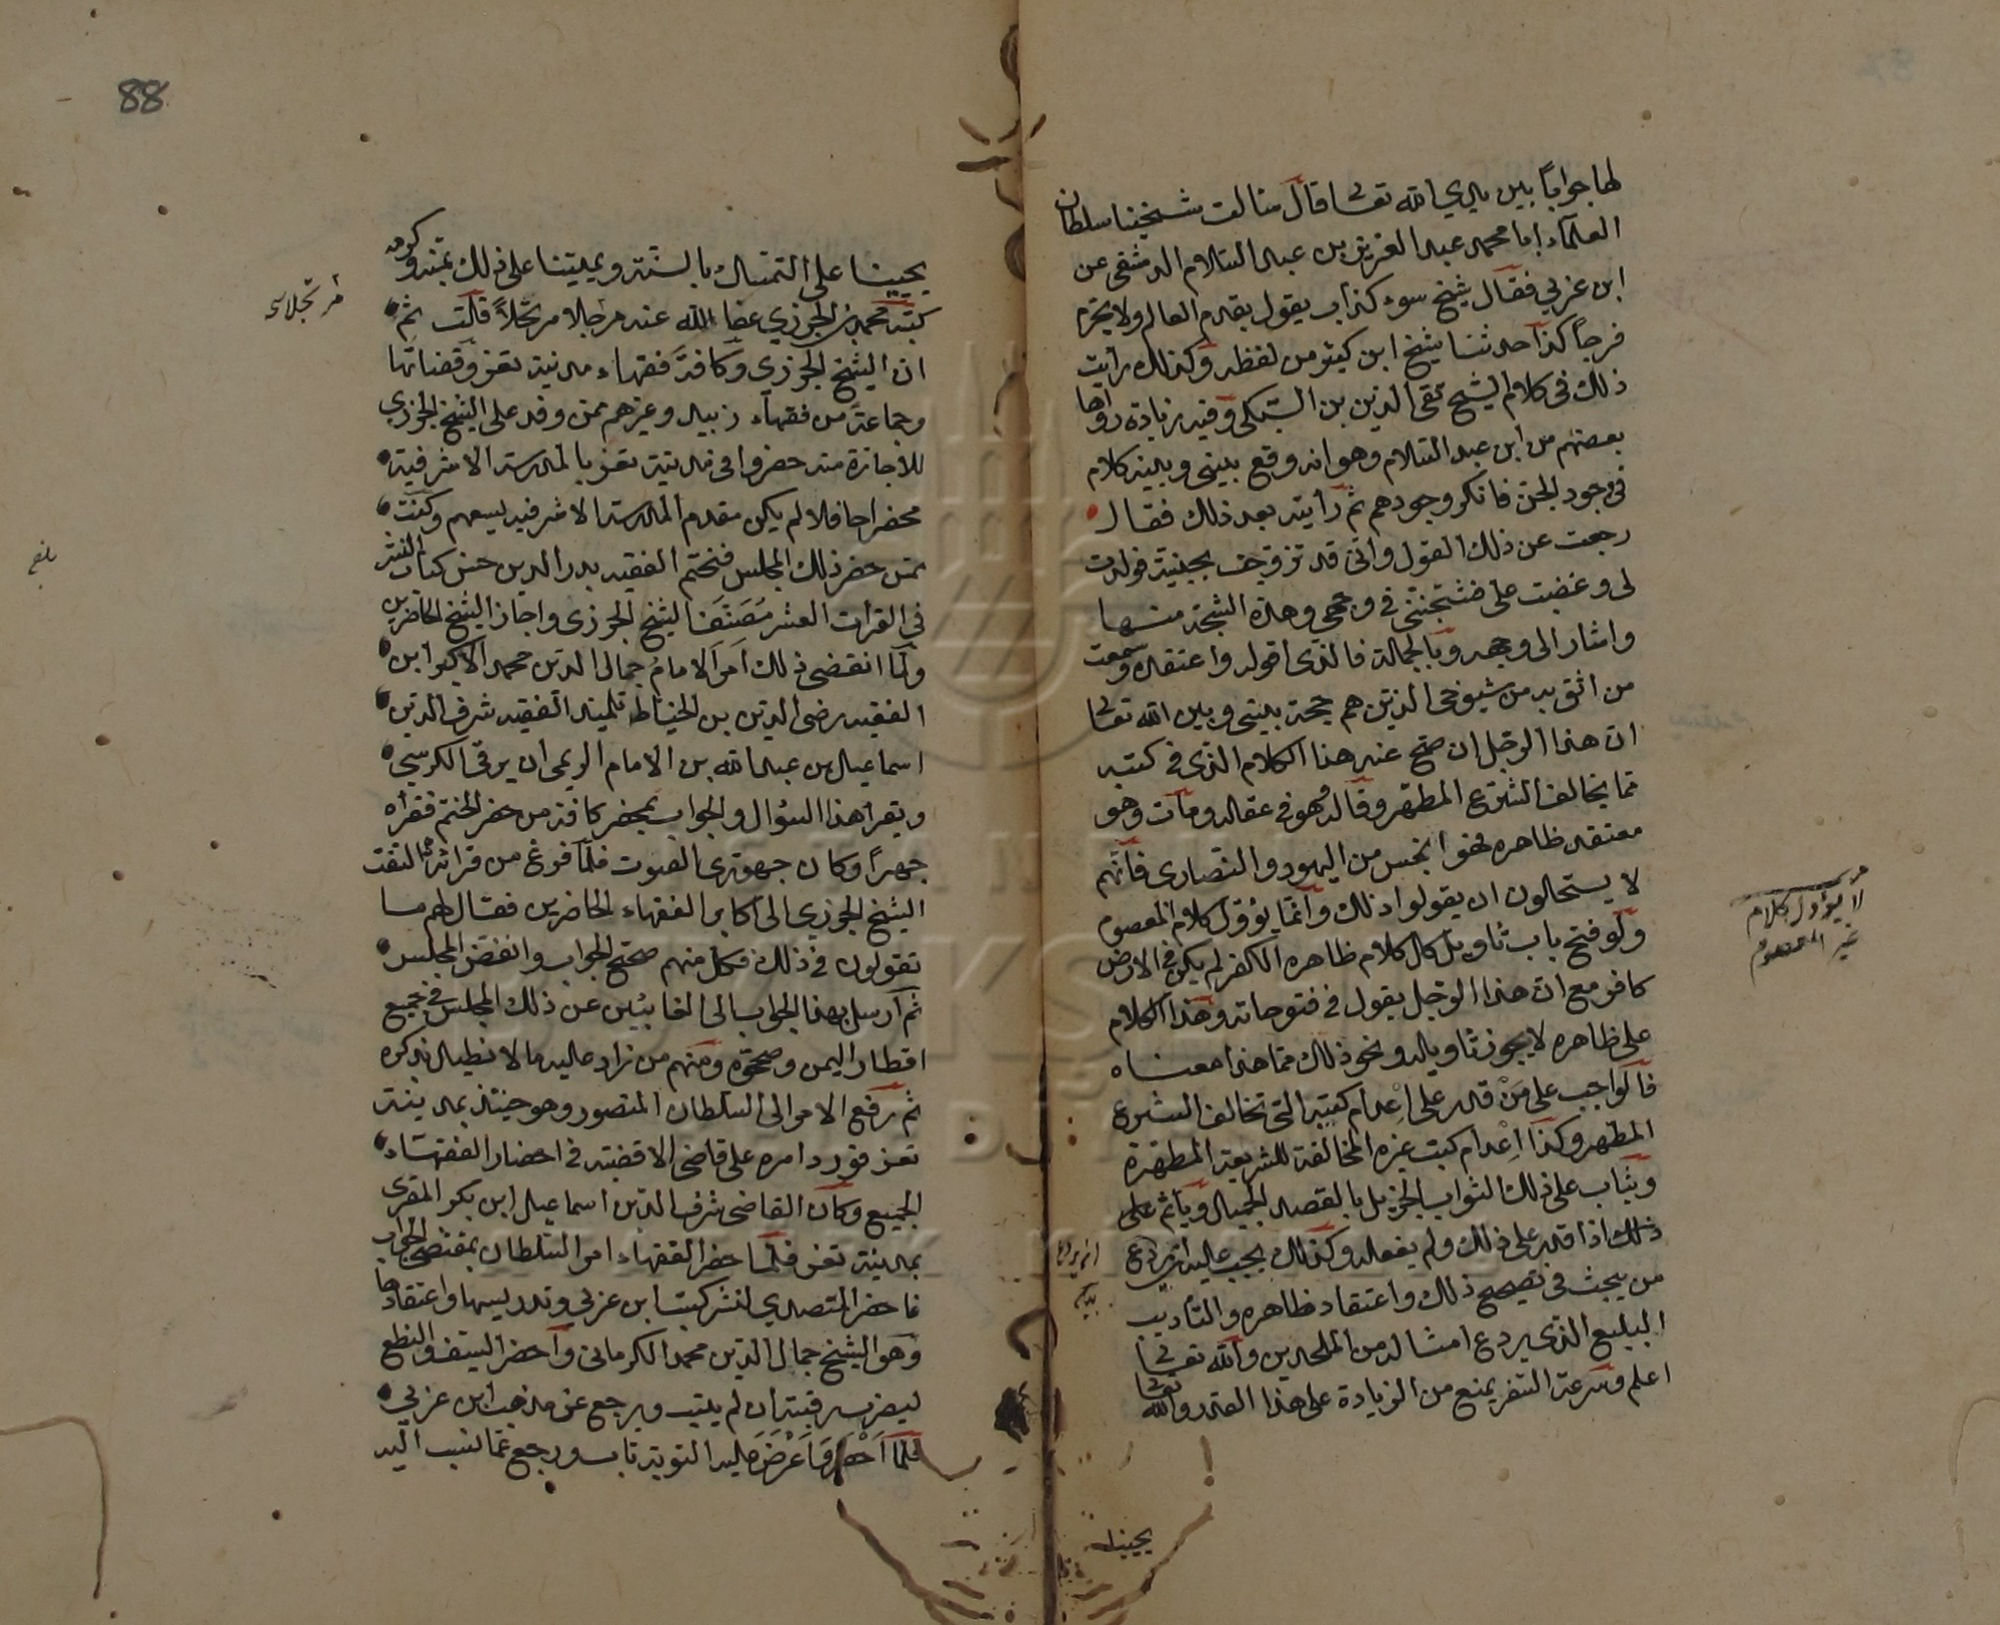 لها جوابًا بين يدي الله تعالى قال سالت شيخنا سلطان
العلماء ابا محمد عبد العزيز بن عبد السلام الدمشقي عن
ابن عربي فقال شيخ سوء كذاب يقول بقدم العالم ولا يحرم
فرجاً كذا حدثنا شيخ ابن كثير من لفظه وكذلك رايت
ذلك في كلام الشيخ تقي الدين بن السبكي وفيه زيادة رواها
بعضهم من ابن عبد السلام وهو انه وقع بيني وبينه كلام
في وجود الجن فانكر وجودهم ثم رأيته بعد ذلك فقال
رجعت عن ذلك القول واني قد تزوجت بجنية فولدت
لى وغضبت على فشجتني في وجهي وهذه الشجة منها
واشار الى وجهه وبالجملة فالذي اقوله واعتقده وسمعت
من اثق به من شيوخي الذين هم حجة بيني وبين الله تعالى
ان هذا الرجل ان صح عنه هذا الكلام الذي في كتبه
مما يخالف الشرع المطهر وقاله وهو في عقله ومات وهو
معتقد ظاهره فهو انجس من اليهود والنصارى فانهم
لا يستحلون ان يقولوا ذلك وانما يؤول كلام المعصوم
ولو فتح باب تاويل كل كلام ظاهره الكفر لم يكن في الارض
كافر مع ان هذا الرجل يقول في فتوحاته وهذا الكلام
على ظاهره لا يجوز تاويله ونحو ذلك مما هذا معناه
فالواجب على مَنْ قدر على اِعدام كتبه التي تخالف الشرع
المطهر وكذا اِعْدام كتب غيره المخالفة للشريعة المطهرة
ويثاب على ذلك الثواب الجزيل بالقصد الجميل ويأثم على
ذلك اذا قدر على ذلك ولم يفعله وكذلك يجب عليه ان يردع
من يبحث في تصحيح ذلك واعتقاد ظاهره والتأديب
البليغ الذي يردع امثاله من الملحدين والله تعالى
اعلم وسرعة السفر يمنع من الزيادة على هذا القدر والله تعالى
يحيينا
لا يؤول كلام
غير المعصوم
88
يحيينا على التمسك بالسنة ويميتنا على ذلك بمنه وكرمه
كتبه محمد بن الجزري عفا الله عنه مرتجلا قلت ثم
ان الشيخ الجزري وكافة فقهاء مدينة تعز وقضاتها
وجماعة من فقهاء زبيد وغيرهم ممن وفد على الشيخ الجزري
للاجازة منه حضروا في مدينة تعز بالمدرسة الاشرفية
محضرا حافلا لم يكن مقدم المدرسة الاشرفيه يسعهم وكنت
ممن حضر ذلك المجلس فختم الفقيه بدر الدين حسن كتاب النشر
في القرات العشر مُصَنَّف الشيخ الجزري واجاز الشيخ الحاضرين
ولما انقضى ذلك اَمَرَ الامام جمال الدين محمد الاكبر ابن
الفقيه رضي الدين بن الخياط تلميذه الفقيه شرف الدين
اسماعيل بن عبد الله بن الامام الريمي ان يرقى الكرسي
ويقرأ هذا السؤال والجواب بمحضر كافة من حضر الختم فقرأه
جهراً وكان جهوري الصوت فلما فرغ من قرائته التفت
الشيخ الجزري الى اكابر الفقهاء الحاضرين فقال لهم ما
تقولون في ذلك فكل منهم صحح الجواب وانفض المجلس
ثم ارسل بهذا الجواب الى الغائبين عن ذلك المجلس في جميع
اقطار اليمن وصححوه ومنهم من زاد عليه ما لا نطيل بذكره
ثم رفع الامر الى السلطان المنصور وهو حينئذ بمدينة
تعز فورد امره على قاضي الاقضية في احضار الفقهاء
الجميع وكان القاضي شرف الدين اسماعيل ابن بكر المقري
بمدينة تعز فلما حضر الفقهاء امر السلطان بمقتضى الجواب
فاحضر المتصدي لنشر كتب ابن عربي وتدريسها واعتقادها
وهو الشيخ جمال الدين محمد الكرماني وأحضر السيف والنطع
ليضرب رقبته ان لم يتب ويرجع عن مذهب ابن عربي
فلما اَحضر وَعَرَضَ عليه التوبة تاب ورجع عما نسب اليه
مرتجلا
بلغ